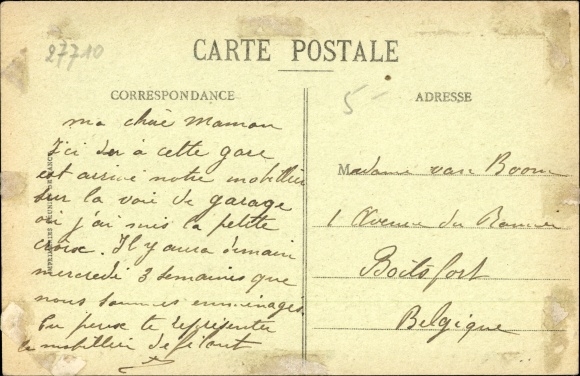 27710
CARTE POSTALE
CORRESPONDANCE
ADRESSE
5-
ma chère Maman
Ici à cette gare
est arrivé notre mobilier
sur la voie de garage
où j'ai mis la petite
croix. Il y aura demain
mercredi 3 semaines que
nous sommes emménagés.
tu peux te représenter
le mobilier defilant
Madame van Boom
1 Avenue du
Boitsfort
Belgique
IMPRIMERIES RÉUNIES DE NANCY